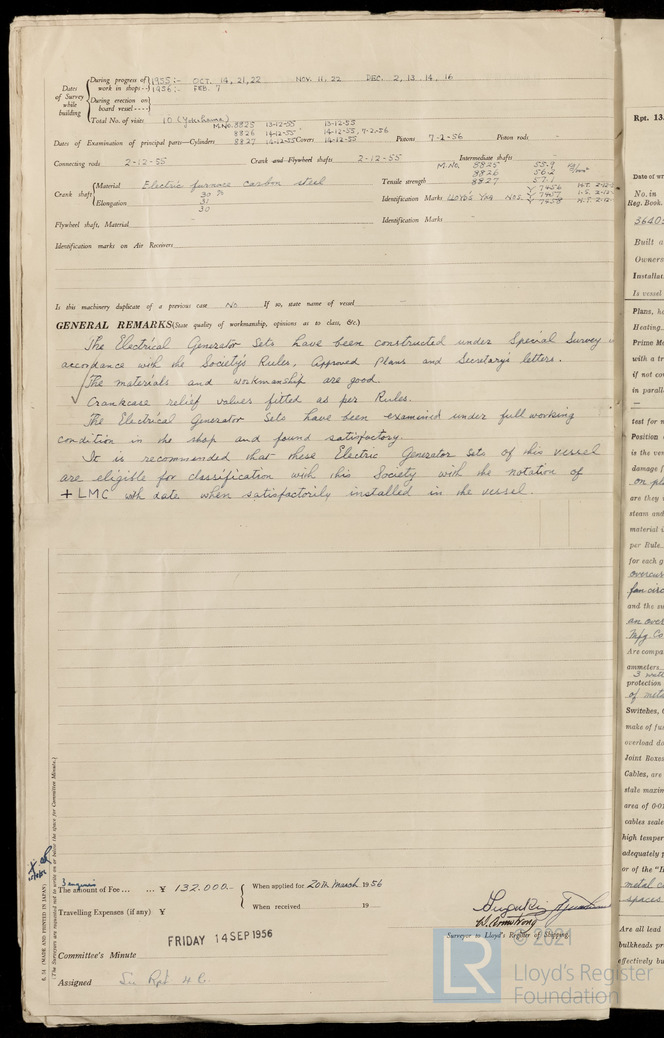 During progress of work in shops-- 1955:- OCT. 14, 21, 22 NOV. 11, 22 DEC. 2, 13, 14, 16
1956:- FEB. 7
Dates of Survey while building
During erection on board vessel----
Total No. of visits 10 (Yokohama)
M.No. 8825 13-12-55 13-12-55
8826 14-12-55 14-12-55, 7-2-56
Dates of Examination of principal parts—Cylinders 8827 14-12-55 Covers 14-12-55 Pistons 7-2-56 Piston rods -
Connecting rods 2-12-55 Crank and Flywheel shafts 2-12-55 Intermediate shafts -
Crank shaft Material Electric furnace carbon steel
Elongation 30 %
31
30
M.No. 8825 55.9 kg/mm²
Tensile strength 8826 56.2
8827 57.1
Identification Marks LLOYD'S YKA NOS. Y 7456
Y 7457
Y 7458
Flywheel shaft, Material
Identification Marks
Identification marks on Air Receivers
Is this machinery duplicate of a previous case No If so, state name of vessel
GENERAL REMARKS (State quality of workmanship, opinions as to class, &c.)
The Electrical Generator Sets have been constructed under Special Survey
accordance with the Society's Rules, Approved Plans and Secretary's letters.
The materials and workmanship are good.
Crankcase relief valves fitted as per Rules.
The Electrical Generator Sets have been examined under full working
condition in the shop and found satisfactory.
It is recommended that these Electric Generator sets of this vessel
are eligible for classification with this Society with the notation of
+ LMC with date when satisfactorily installed in the vessel.
3 engines
The amount of Fee ... ... ¥ 132,000.- When applied for 20th March 1956
Travelling Expenses (if any) ¥ When received 19
Surveyor to Lloyd's Register of Shipping.
FRIDAY 14 SEP 1956
Committee's Minute
Assigned See Rpt 4 C.
(MADE AND PRINTED IN JAPAN)
(The Surveyors are requested not to write on or below the space for Committee Minute.)
© 2021
LR
Lloyd's Register
Foundation
Rpt. 13.
No. in
Reg. Book.
Built a
Owners
Is vessel
Plans, ha
Heating.
Prime Mo
with a tr
if not co
in parall
test for m
Position
is the ver
damage
on pl
are they
steam and
material i
per Rule
for each g
overcur
fan circ
and the su
an over
Mfg Co
Are compa
ammeters
3 watt
protection
of meta
Switches,
make of fu
overload de
Joint Boxes
Cables, are
stale maxim
area of 0.0
cables seale
high temper
adequately p
or of the "H
metal c
spaces
Are all lead
bulkheads pr
effectively bu